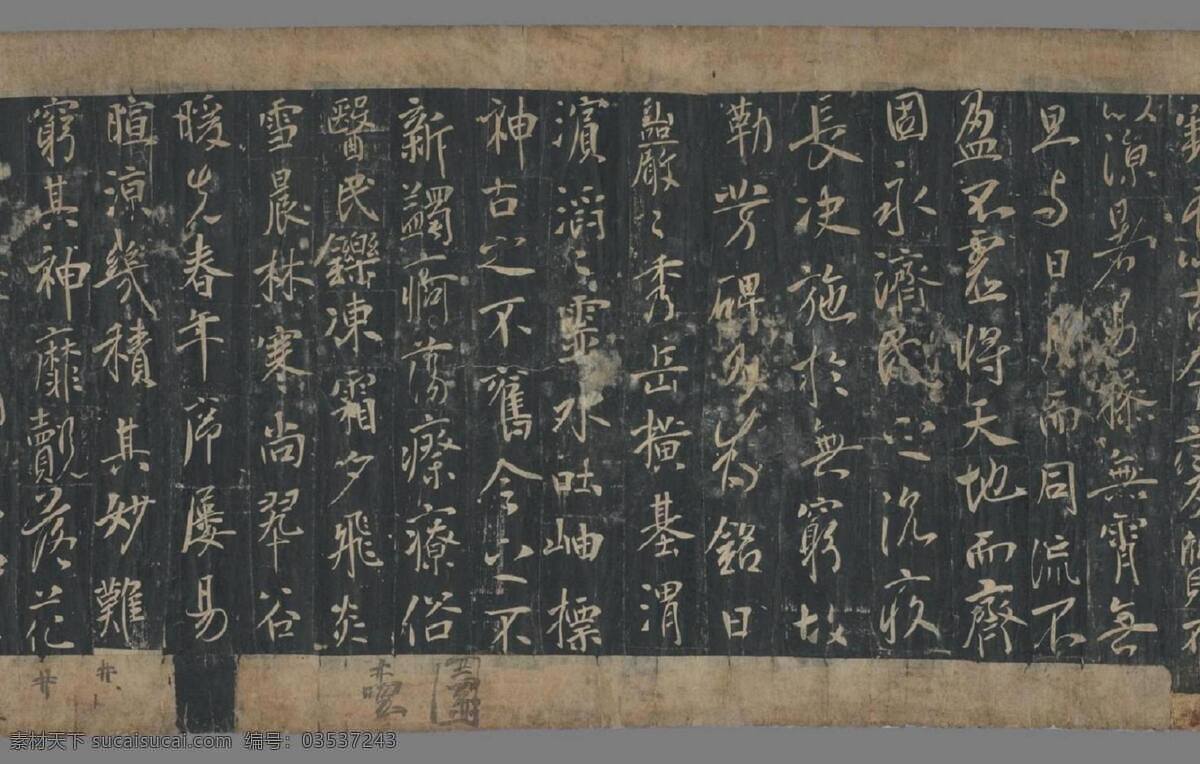 以涼暑易操無霄無
旦与日月而同流不
盈不虛將天地而齊
固永濟民之沉疾
長决施於無窮故
勒芳碑乃为銘曰
巖々秀岳橫基渭
濱滔々靈水吐岫標
神古之不舊今之不
新蠲痾蕩瘵療俗
醫民鑠凍霜夕飛炎
雪晨林寒尚翠谷
暖先春年序屢易
暄涼幾積其妙難
窮其神靡覿落花
素材天下 sucaisucai.com 编号: 03537243